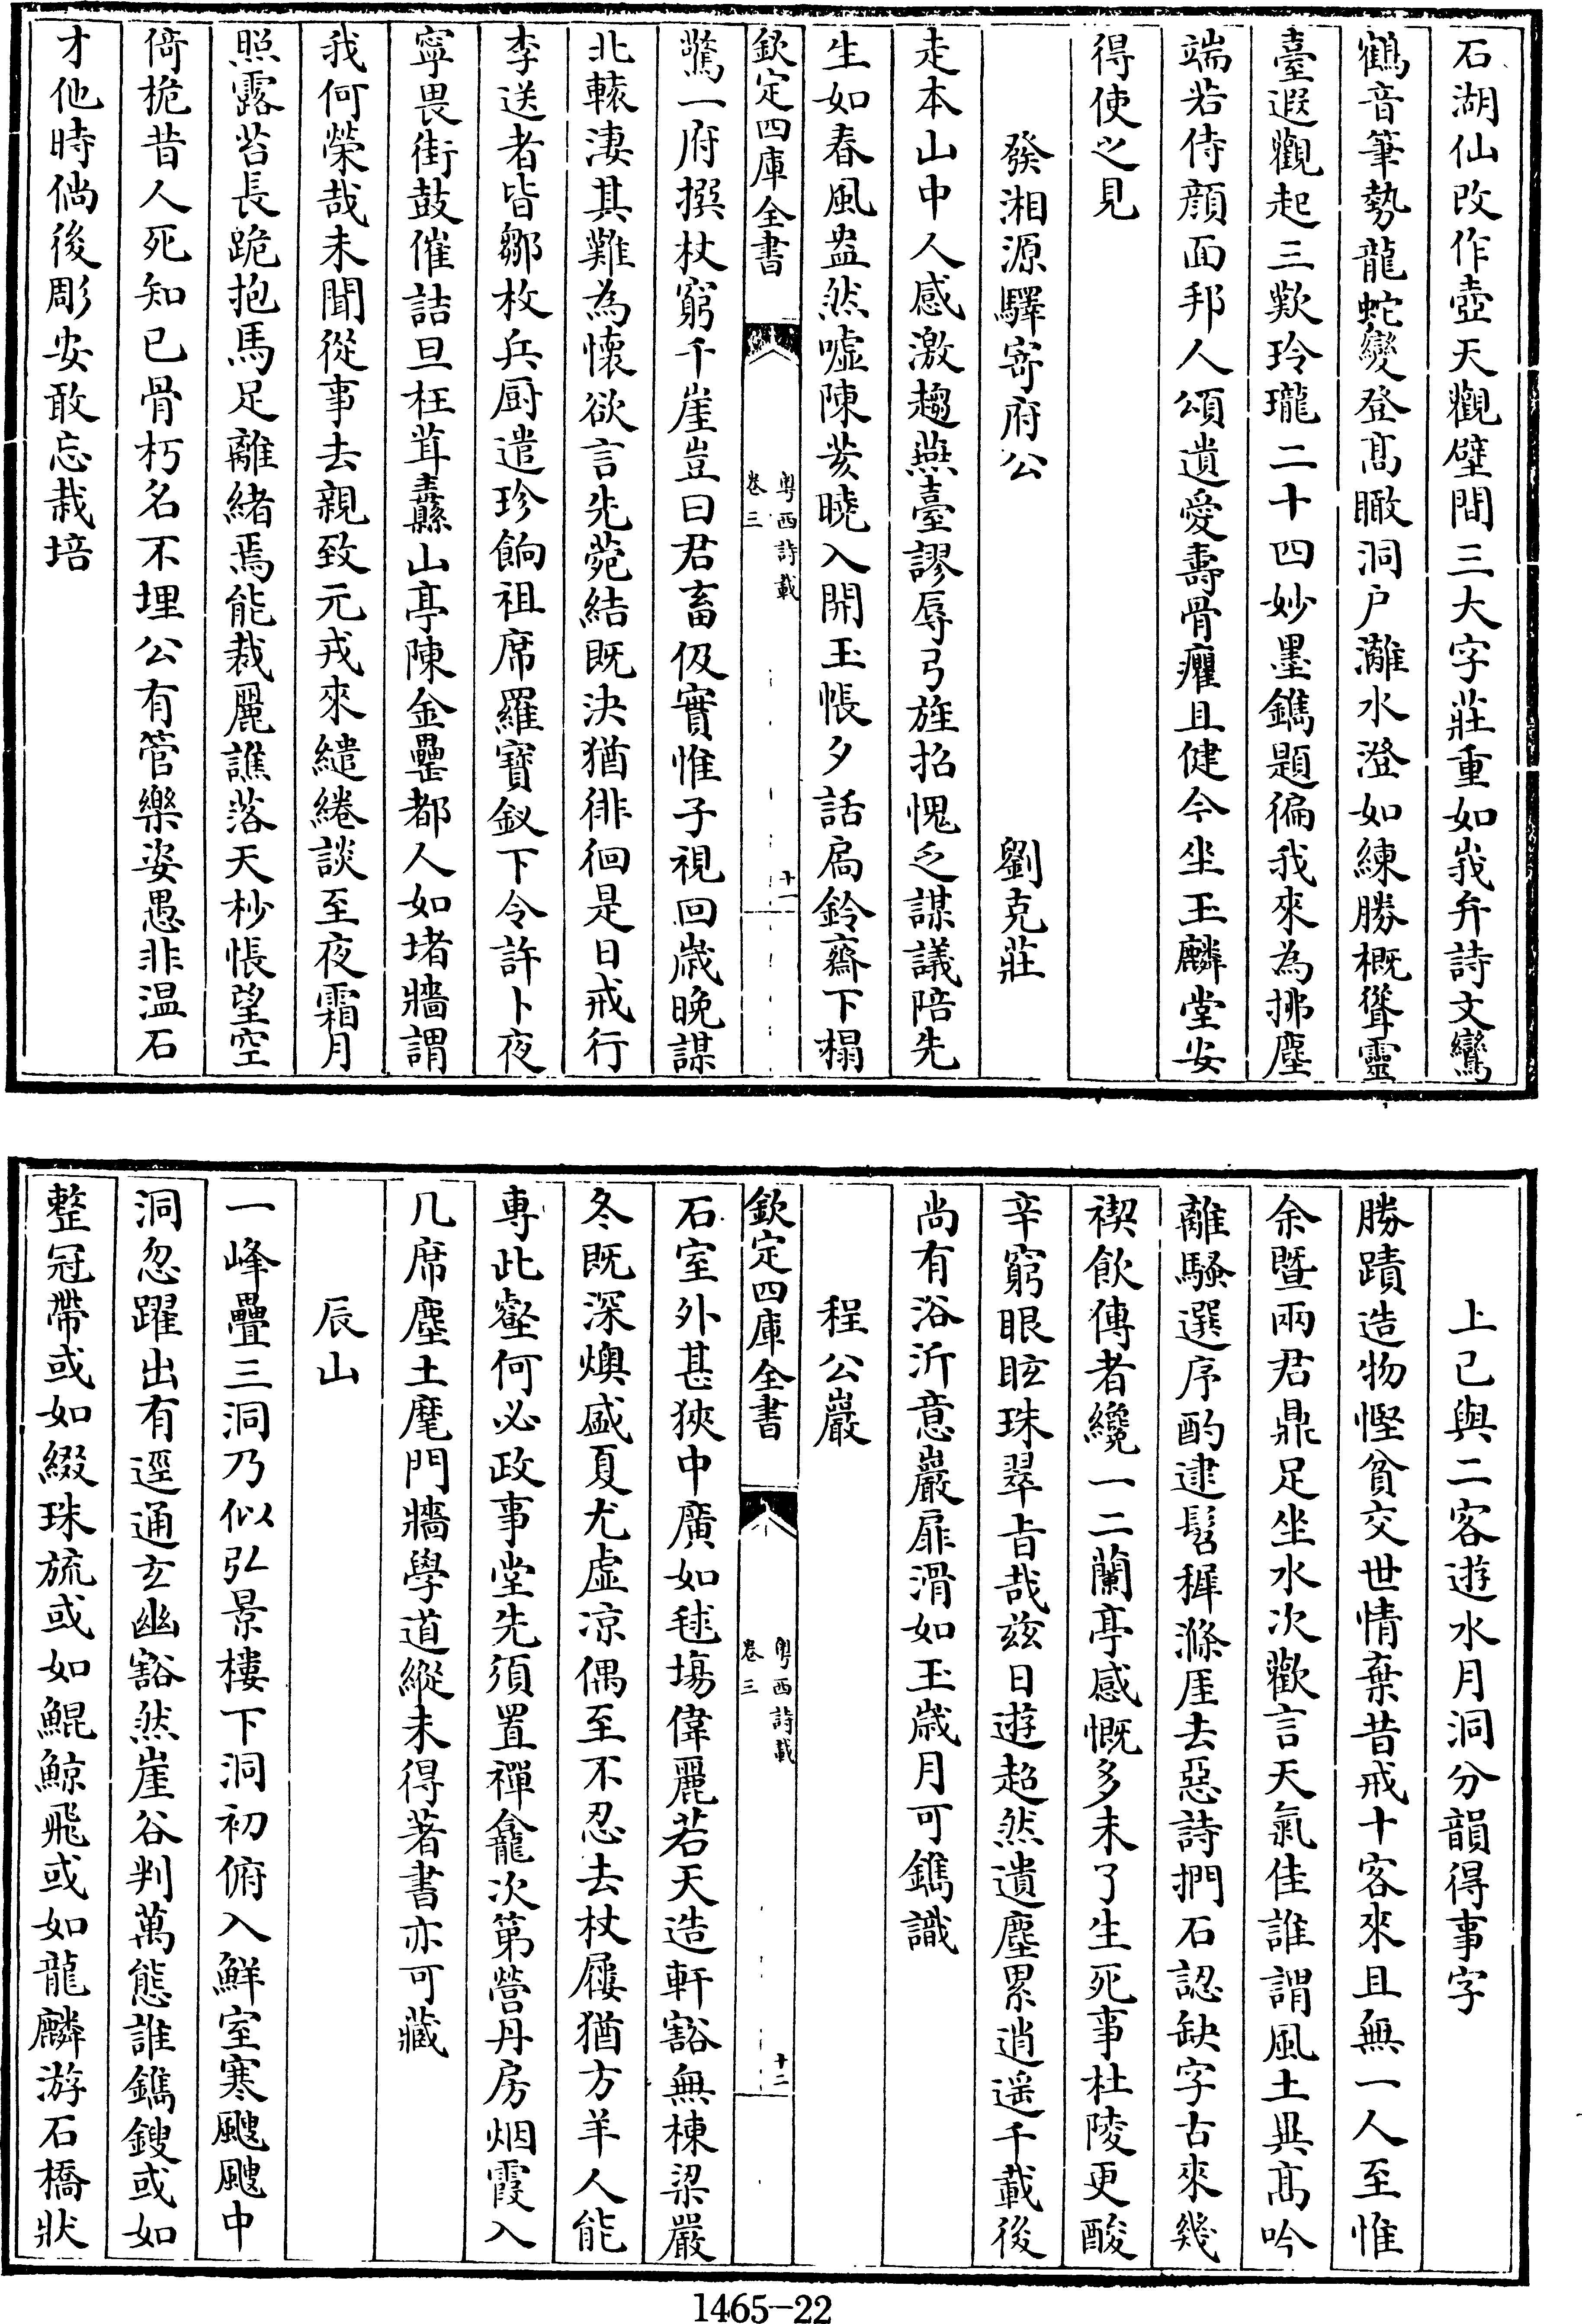 石湖仙改作壺天觀壁間三大字莊重如峩弁詩文鸞
鶴音筆勢龍蛇變登髙瞰洞户灕水澄如練勝概聳靈
臺遐觀起三歎玲瓏二十四妙墨鐫題徧我來為拂塵
端若侍顔面邦人頌遺愛壽骨癯且健今坐玉麟堂安
得使之見
發湘源驛寄府公 劉克莊
走本山中人感激趨燕臺謬辱弓旌招愧乏謀議陪先
生如春風盎然嘘陳荄曉入開玉帳夕話扄鈴齋下榻
欽定四庫全書 粤西詩載 卷三 十一
驚一府撰杖窮千崖豈曰君畜伋實惟子視回歲晚謀
北轅凄其難為懷欲言先菀結既決猶徘徊是日戒行
李送者皆鄒枚兵厨遣珍餉祖席羅寶釵下令許卜夜
寧畏街鼓催詰旦枉茸纛山亭陳金罍都人如堵牆謂
我何榮哉未聞從事去親致元戎來繾綣談至夜霜月
照露苔長跪抱馬足離緒焉能裁麗譙落天杪悵望空
倚桅昔人死知已骨朽名不埋公有管樂姿愚非温石
才他時倘後彫安敢忘栽培
上已與二客遊水月洞分韻得事字
勝蹟造物慳貧交世情棄昔戒十客來且無一人至惟
余暨兩君鼎足坐水次歡言天氣佳誰謂風土異髙吟
離騷選序酌逮髫穉滌厓去惡詩捫石認缺字古來幾
禊飲傳者纔一二蘭亭感慨多未了生死事杜陵更酸
辛窮眼眩珠翠旨哉兹日遊超然遺塵累逍遥千載後
尚有浴沂意巖扉滑如玉歲月可鐫識
程公巖
欽定四庫全書 粤西詩載 卷三 十二
石室外甚狹中廣如毬塲偉麗若天造軒豁無棟梁嚴
冬既深燠盛夏尤虚凉偶至不忍去杖屨猶方羊人能
專此壑何必政事堂先須置禪龕次第營丹房烟霞入
几席塵土麾門牆學道縱未得著書亦可藏
辰山
一峰疊三洞乃似弘景樓下洞初俯入鮮室寒颼颼中
洞忽躍出有逕通玄幽豁然崖谷判萬態誰鐫鎪或如
整冠帶或如綴珠旒或如鯤鯨飛或如龍麟游石橋狀
1465-22